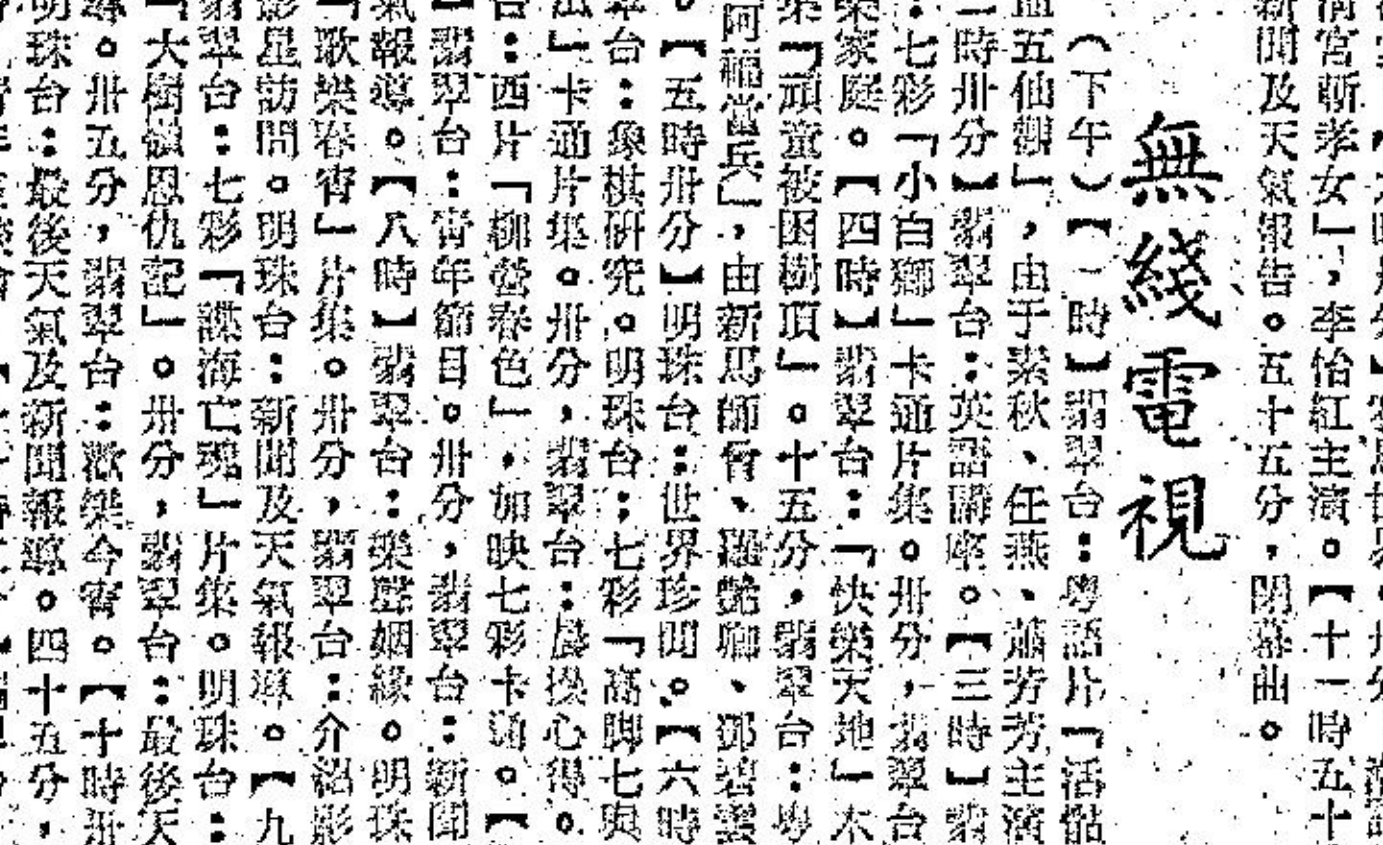 宮斬孝女」，李怡紅主演。【十一時五十
新聞及天氣報告。五十五分，閉幕曲。
無綫電視
（下午）【一時】翡翠台：粵語片「活骷
血五仙觀」，由于素秋、任燕、蕭芳芳主演
二時卅分】翡翠台：英語講座。【三時】翡
：七彩「小白獅」卡通片集。卅分，翡翠台
樂家庭。【四時】翡翠台：「快樂天地」木
集「頑童被困樹頂」。十五分，翡翠台：粵
阿福當兵」，由新馬師曾、羅艷卿、鄧碧雲
。【五時卅分】明珠台：世界珍聞。【六時
翠台：象棋硏究。明珠台；七彩「高脚七與
法」卡通片集。卅分，翡翠台：晨操心得。
台：西片「柳營春色」，加映七彩卡通。【
】翡翠台：青年節目。卅分，翡翠台：新聞
氣報導。【八時】翡翠台：樂壇姻緣。明珠
「歌樂春宵」片集。卅分，翡翠台：介紹影
影星訪問。明珠台：新聞及天氣報導。【九
翡翠台：七彩「諜海亡魂」片集。明珠台：
「大樹嶺恩仇記」。卅分，翡翠台：最後天
導。卅五分，翡翠台：歡樂今宵。【十時卅
明珠台：最後天氣及新聞報導。四十五分，